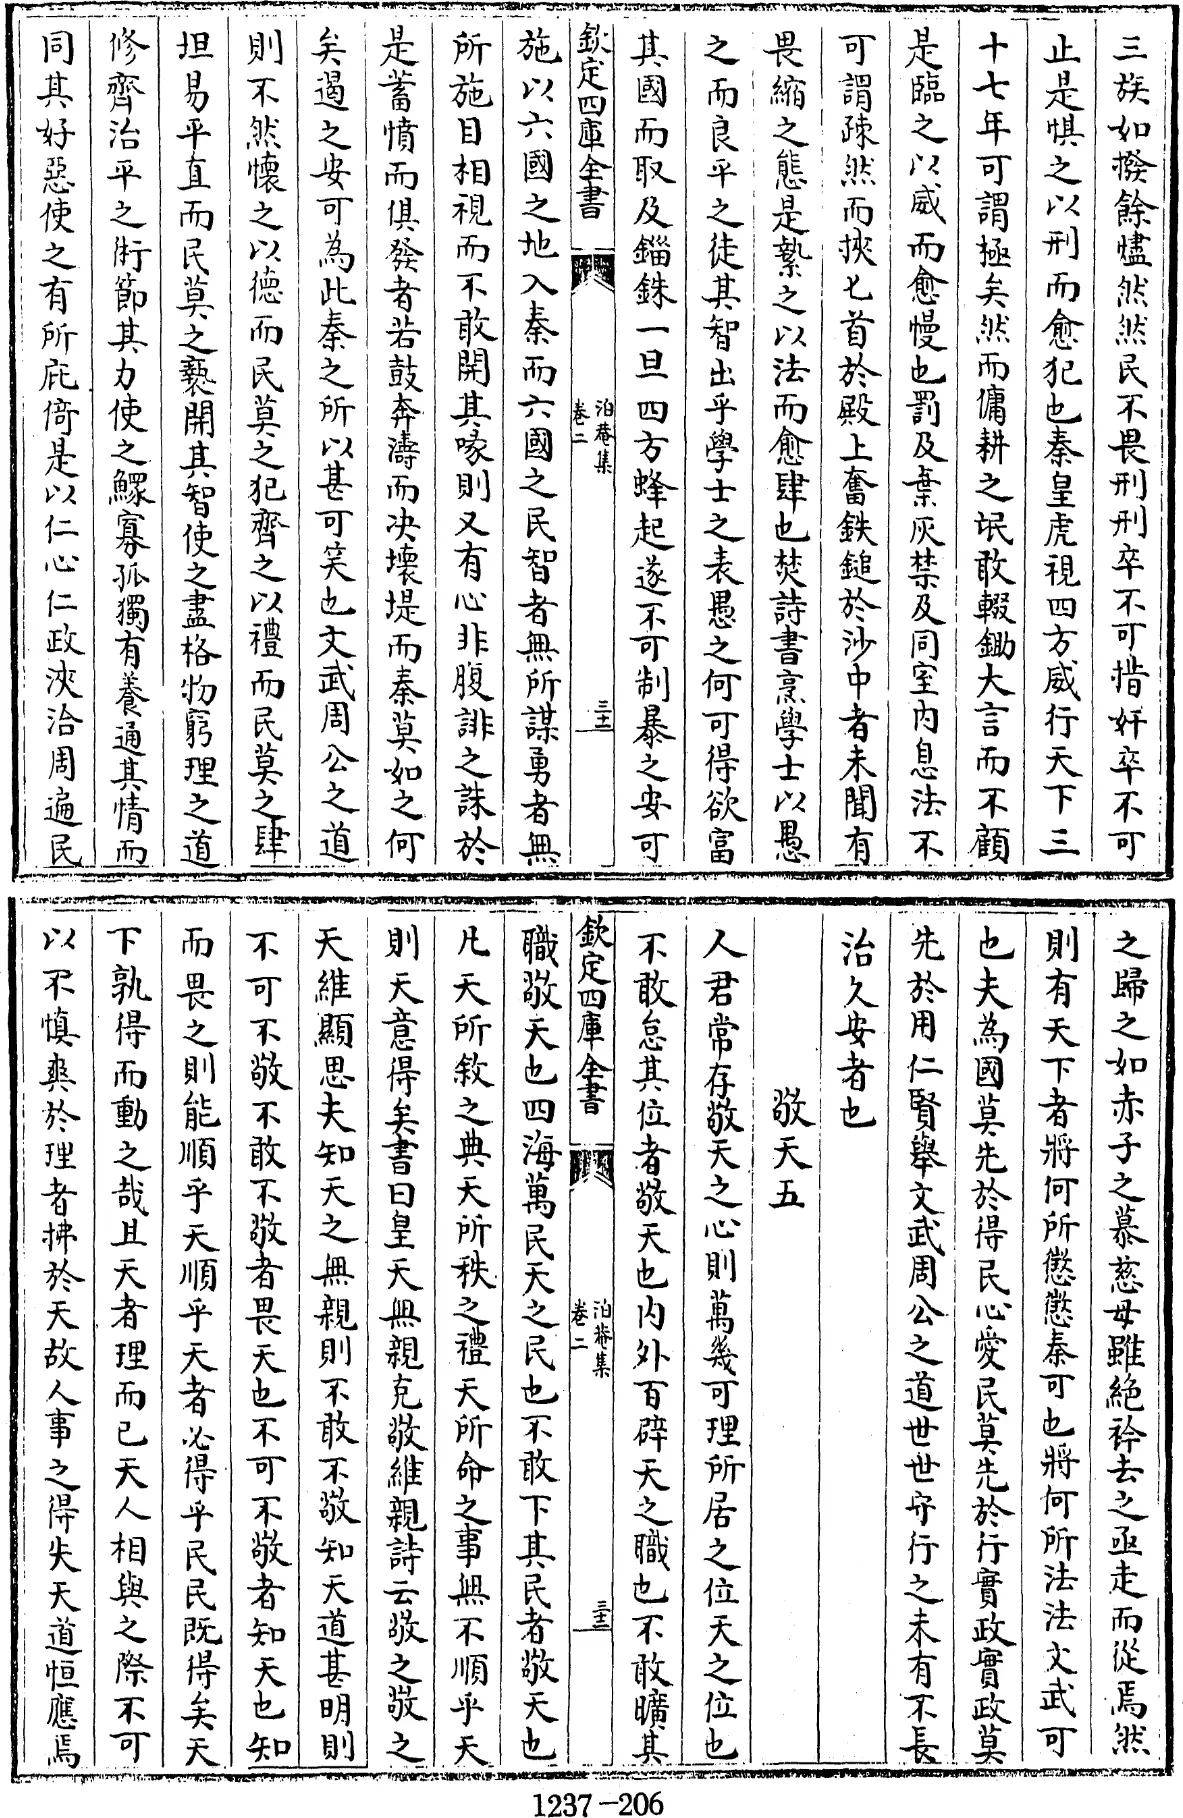 三族如撥餘燼然然民不畏刑刑卒不可措奸卒不可
止是惧之以刑而愈犯也秦皇虎視四方威行天下三
十七年可謂極矣然而傭耕之氓敢輟鋤大言而不顧
是臨之以威而愈慢也罰及棄灰禁及同室内息法不
可謂疎然而挾匕首於殿上奮鉄鎚於沙中者未聞有
畏縮之態是縶之以法而愈肆也焚詩書烹學士以愚
之而良平之徒其智出乎學士之表愚之何可得欲富
其國而取及錙銖一旦四方蜂起遂不可制暴之安可
欽定四庫全書
泊菴集
卷二
三十二
施以六國之地入秦而六國之民智者無所謀勇者無
所施目相視而不敢開其喙則又有心非腹誹之誅於
是蓄憤而俱發者若鼓奔濤而决壞堤而秦莫如之何
矣遏之安可為此秦之所以甚可笑也文武周公之道
則不然懷之以德而民莫之犯齊之以禮而民莫之肆
坦易平直而民莫之褻開其智使之盡格物窮理之道
修齊治平之術節其力使之鰥寡孤獨有養通其情而
同其好惡使之有所庇倚是以仁心仁政浹洽周遍民
之歸之如赤子之慕慈母雖絶衿去之亟走而從焉然
則有天下者將何所懲懲秦可也將何所法法文武可
也夫為國莫先於得民心愛民莫先於行實政實政莫
先於用仁賢舉文武周公之道世世守行之未有不長
治久安者也
敬天五
人君常存敬天之心則萬幾可理所居之位天之位也
不敢怠其位者敬天也内外百辟天之職也不敢曠其
欽定四庫全書
泊菴集
卷二
三十三
職敬天也四海萬民天之民也不敢下其民者敬天也
凡天所敘之典天所秩之禮天所命之事無不順乎天
則天意得矣書曰皇天無親克敬維親詩云敬之敬之
天維顯思夫知天之無親則不敢不敬知天道甚明則
不可不敬不敢不敬者畏天也不可不敬者知天也知
而畏之則能順乎天順乎天者必得乎民民既得矣天
下孰得而動之哉且天者理而已天人相與之際不可
以不慎爽於理者拂於天故人事之得失天道恒應焉
1237-206